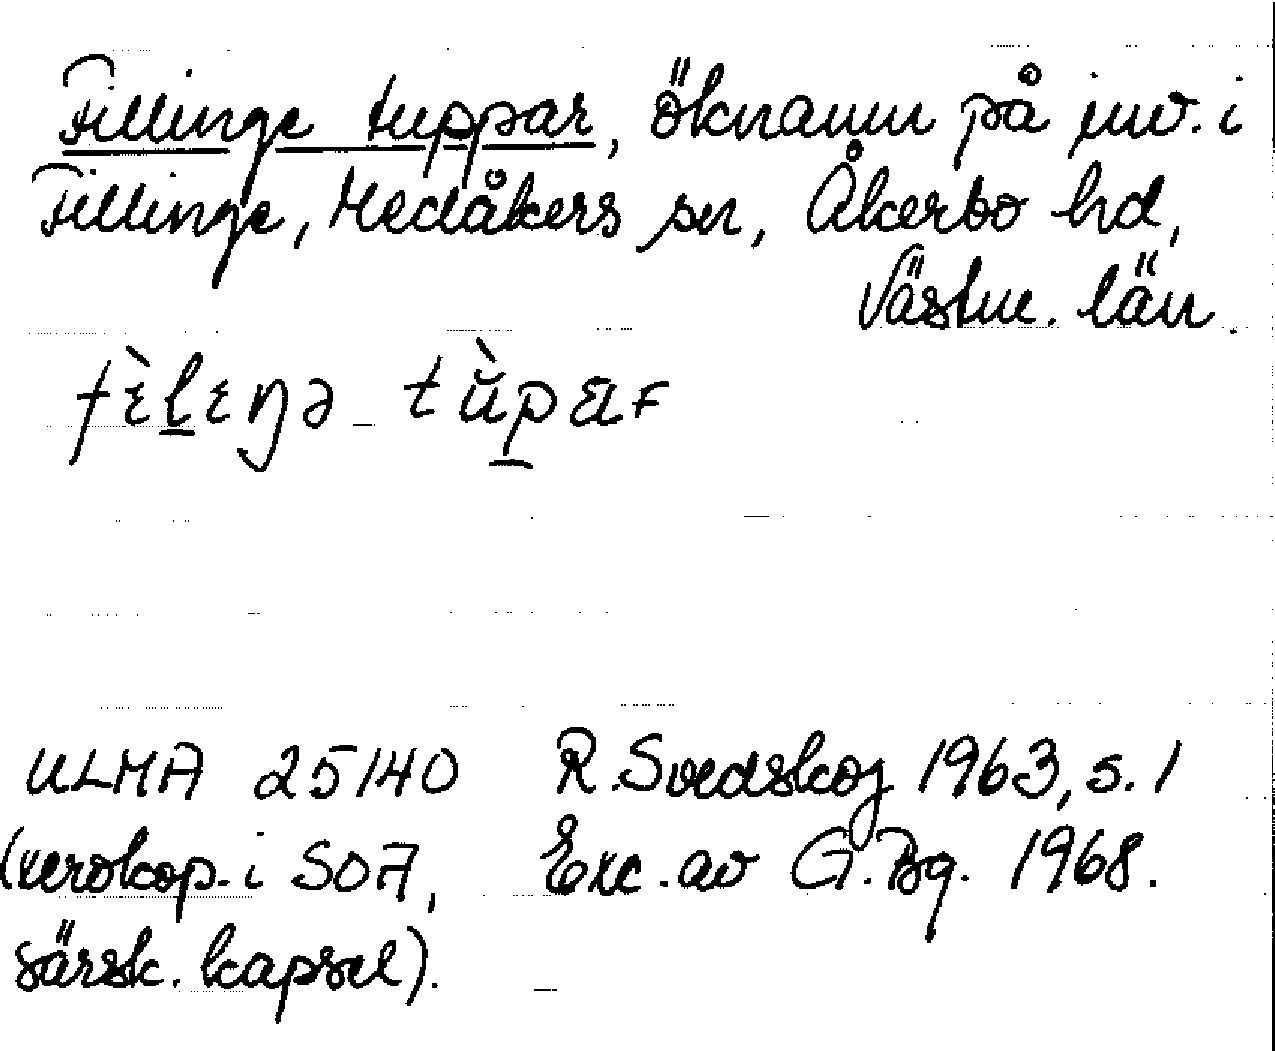 Fillinge tuppar, öknamn på inv. i
Fillinge, Medåkers sn, Åkerbo hd,
Västm. län.
fὲlɛŋə tùpar
ULMA 25140 R. Svedskog 1963, s. 1
(xerokop. i SOA, Exc. av G. Bg. 1968.
särsk. kapsel).